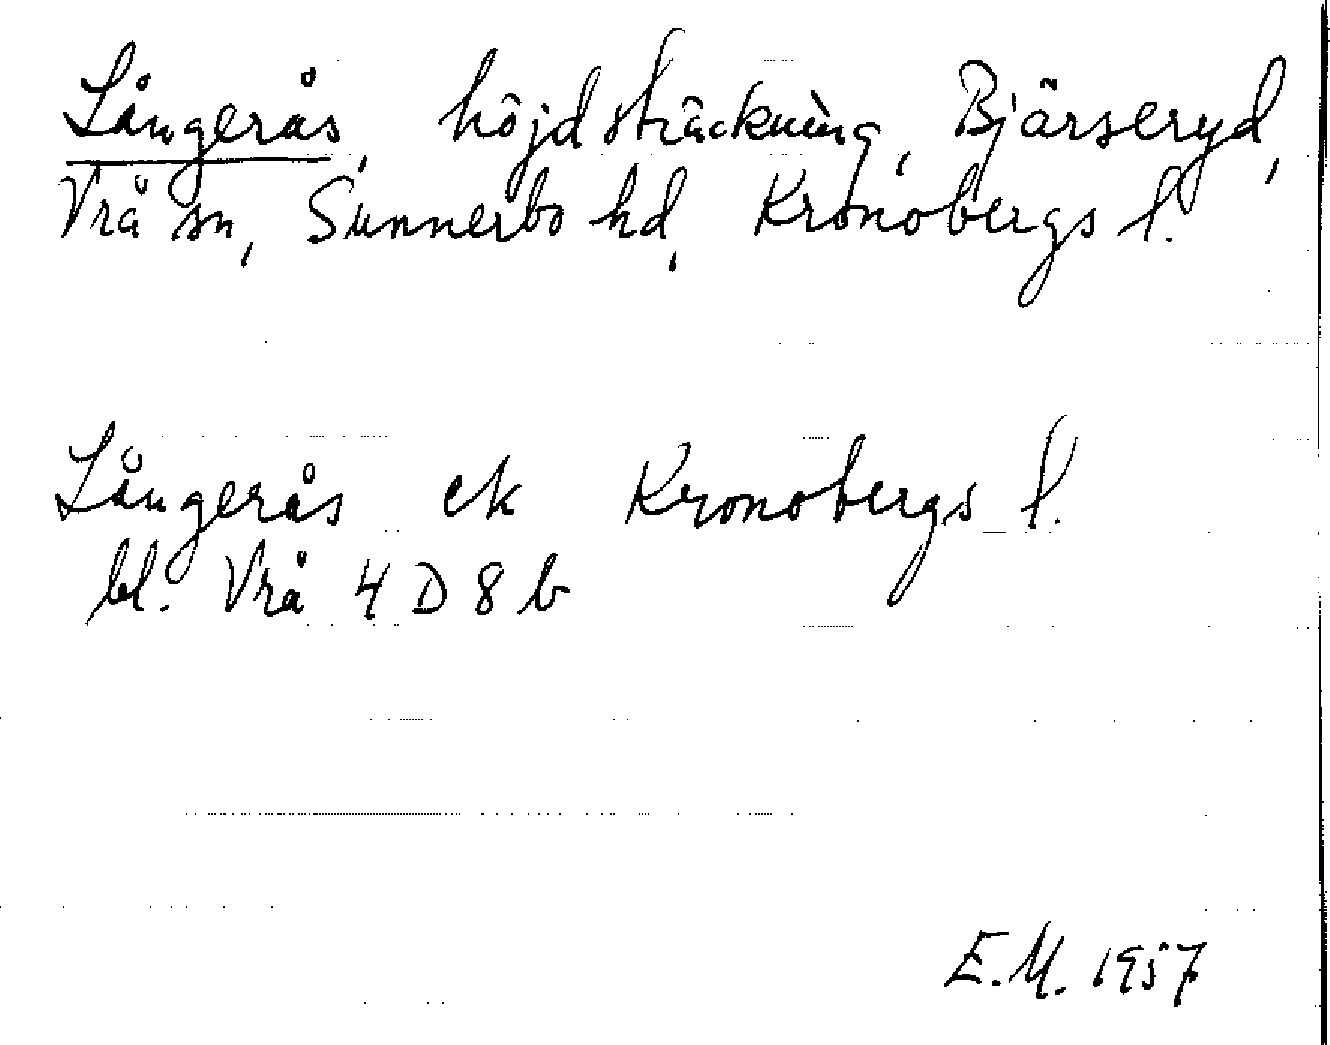 Långerås, höjdsträckning, Bjärseryd,
Vrå sn, Sunnerbo hd, Kronobergs l.
Långerås ek Kronobergs l.
bl. Vrå 4 D 8 b
E.M. 1957